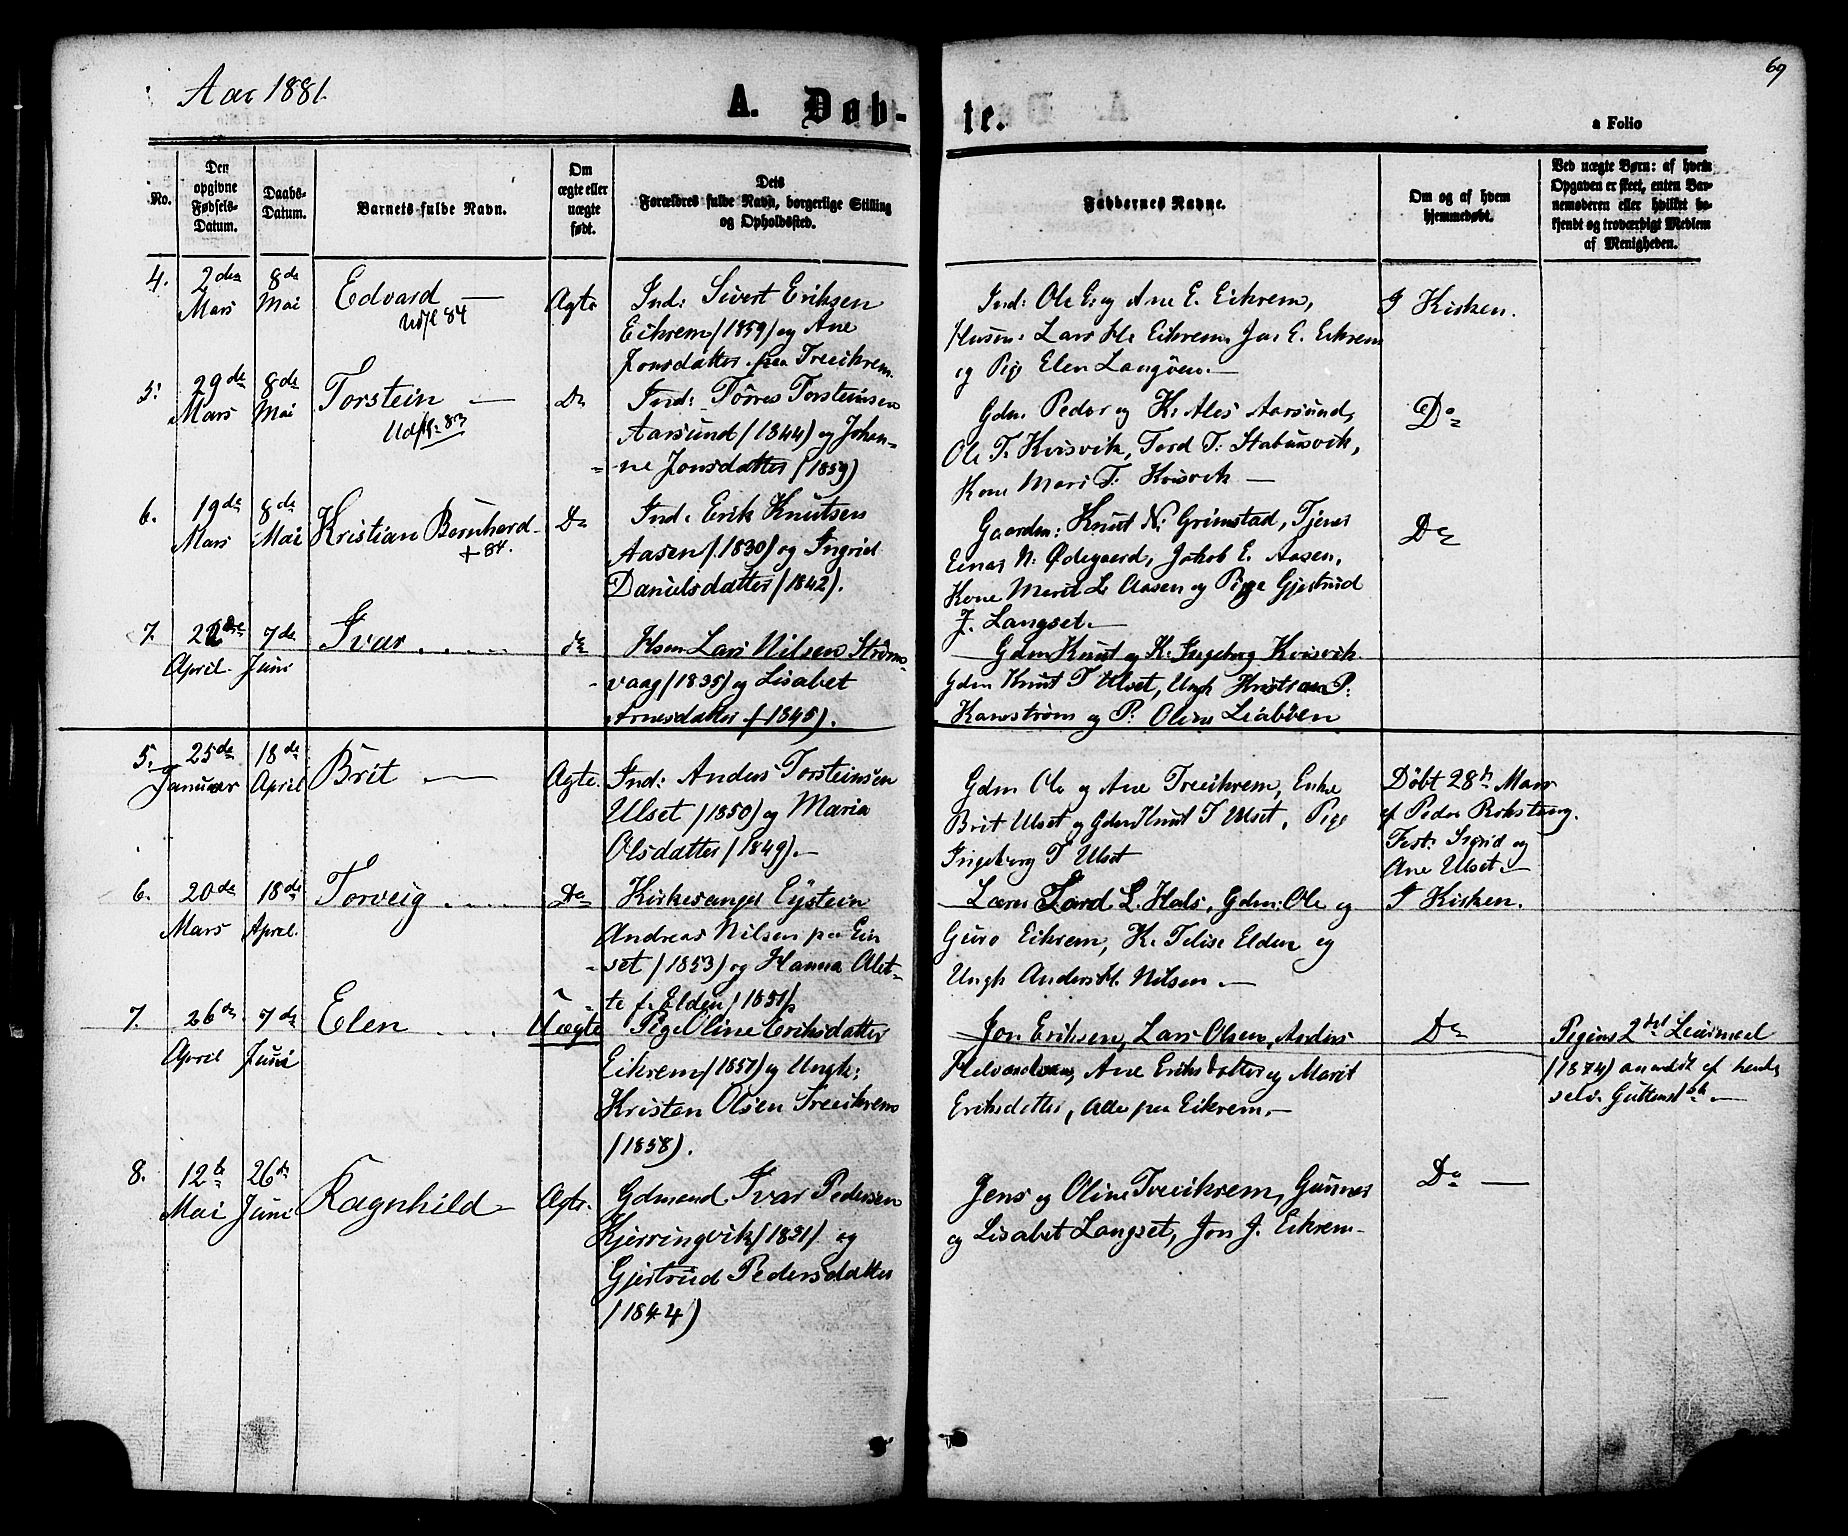 69
Aar 1881.
A. Døb-
te.
a Folio
No.
Den
opgivne
Fødsels-
Datum.
Daabs-
Datum.
Barnets fulde Navn.
Om
ægte eller
uægte
født.
Dets
Forældres fulde Navn, borgerlige Stilling
og Opholdssted.
Faddernes Navne.
Om og af hvem
hjemmedøbt.
Ved uægte Børn: af hvem
Opgaven er skeet, enten Bar-
nemoderen eller hvilket be-
kjendt og troværdigt Medlem
af Menigheden.
4.
2den
Mars
8de
Mai
Edvard —
84
Ægte
Ind: Sivert Eriksen
Eikrem (1859) og Ane
Jonsdatter paa Treeikrem.
Ind: Ole E. og Ane E. Eikrem,
Lars Eikrem, E. Eikrem
og Pige Elen Langøen. —
I Kirken.
5.
29de
Mars
8de
Mai
Torstein —
83
Do
Ind: Tørres Torsteinsen
Aarsund (1844) og Johan-
ne Jonsdatter (1859)
Gdm. Peder og K. Ales Aarsund,
Ole T. Kvisvik, Tord T. Stabusvik,
Kone Mari T. Kvisvik —
Do
6.
19de
Mars
8de
Mai
Kristian Bernhard
+ 84.
Do
Ind. Erik Knutsen
Aasen (1830) og Ingrid
Danielsdatter (1842).
Gaardm: Knut N. Grimstad, Tjener
Einar N. Ødegaard, Jakob E. Aasen,
Kone Marit L. Aasen og Pige Gjertrud
J. Langset. —
Do
7.
April
7de
Juni
Ivar . . . .
do
Lars Nilsen Strøms-
vaag (1835) og Lisabet
Arnesdatter (1845).
Gdm Knut og K. Ingeborg Kvisvik.
Gdm Knut T Ulset, Ungk Kristian P.
og P: Oline Leabøen
5.
25de
Januar
18de
April
Brit —
Ægte.
Ind: Anders Torsteinsen
Ulset (1850) og Maria
Olsdatter (1849). —
Gdm Ole og Ane Treeikrem, Enke
Brit Ulset og Gdm Knut T Ulset, Pige
Ingeborg T Ulset
Døbt 28de Mars
af Peder
Test: Sigrid og
Ane Ulset. —
6.
20de
Mars
18de
April.
Torveig . . . .
Do
Kirkesanger Eystein
Andreas Nilsen paa Ein
set (1853) og Hanna Olet-
te f. Elden (1851).
Lærer Tord L. Hals, Gdm. Ole og
Guro Eikrem, K. Elden og
Ungk Anders H. Nilsen. —
I Kirken.
7.
26de
April
7de
Juni
Elen . . .
Uægte
Pige Oline Eriksdatter
Eikrem (1857) og Ungk:
Kristen Olsen Treeikrem
(1858).
Jon Eriksen, Lars Olsen, Anders
Ane Eriksdatter og Marit
Eriksdatter, Alle paa Eikrem. —
Do
Pigens 2det Leiermaal
(1874) anmeldt af hende
selv.
8.
12te
Mai
26de
Juni
Ragnhild —
Ægte.
Gdmand Ivar Pedersen
Kjerringvik (1831) og
Gjertrud Pedersdatter
(1844)
Jens og Oline Treeikrem, Gunner
og Lisabet Langset, Jon J. Eikrem —
Do —